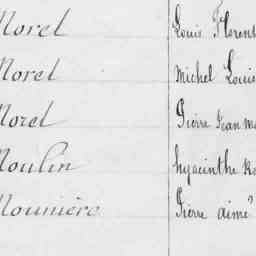 Morel Louis Florent
Morel Michel Louis
Morel Pierre Jean M
Moulin hyacinthe
Mounièro Pierre aimé